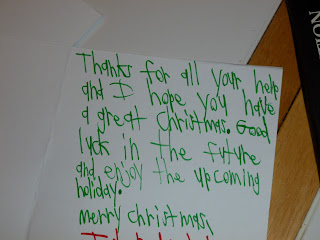 Thanks for all your help
and I hope you have
a great christmas. Good
luck in the future
and enjoy the upcoming
holiday.
merry christmas,